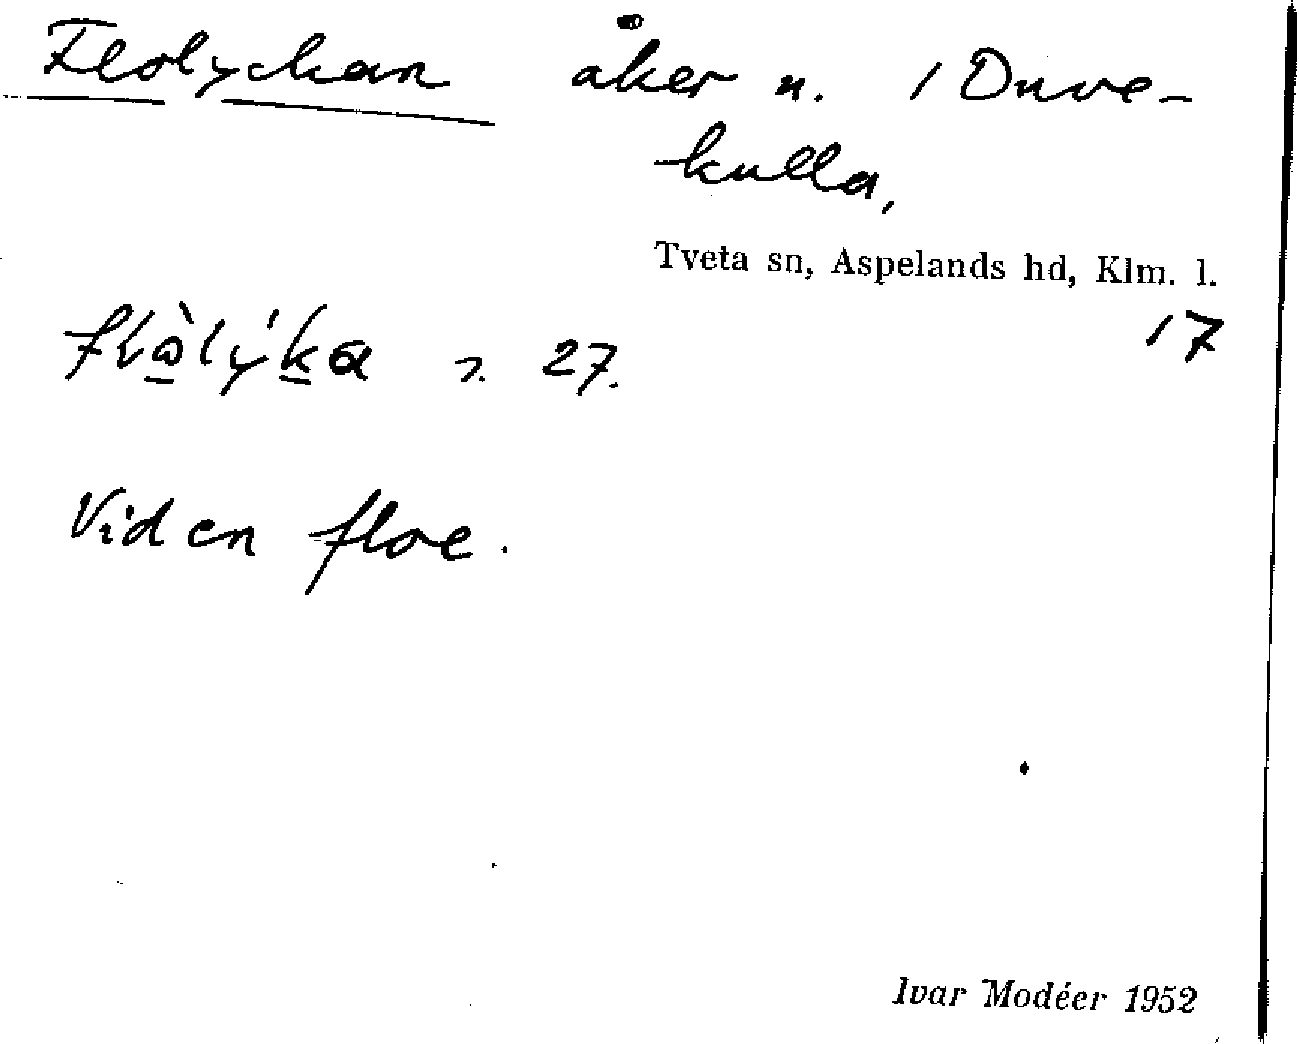 Flolyckan åker n. 1 Duve-
kulla,
Tveta sn, Aspelands hd, Klm. l.
17
27.
Vid en floe.
Ivar Modéer 1952